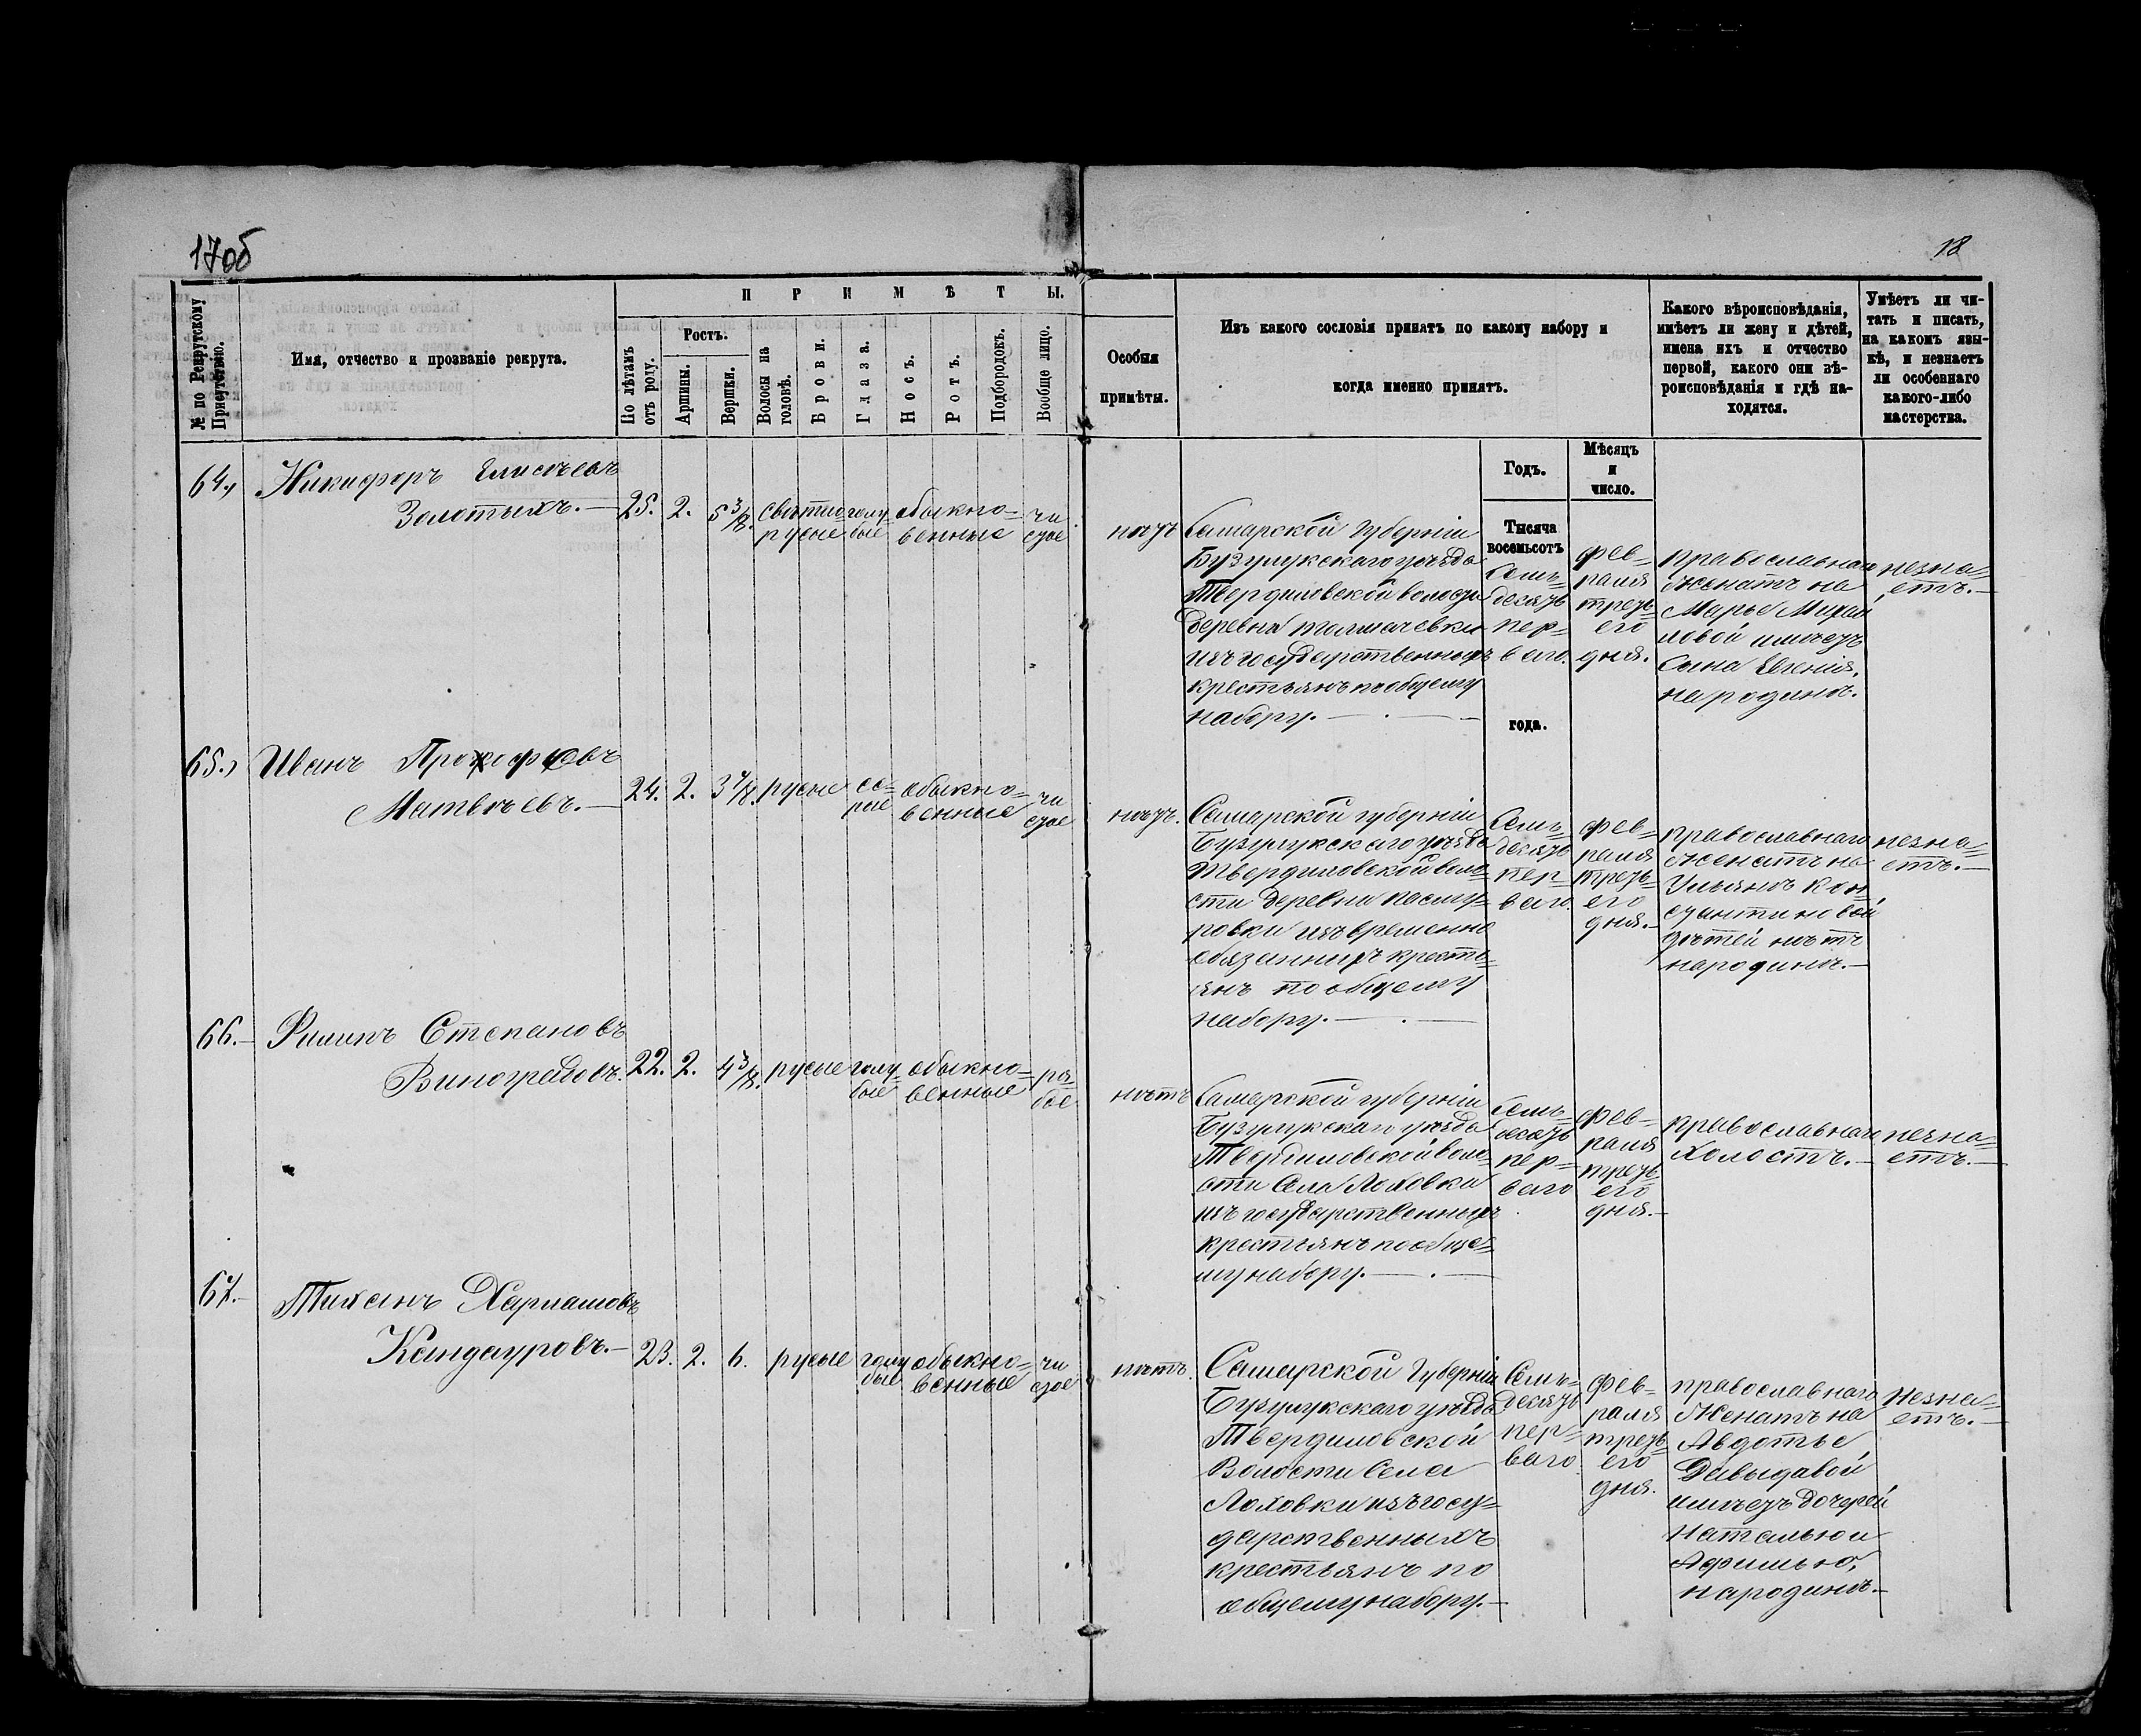 17об
18
№ по Рекрутскому Присутствію.
Имя, отчество и прозваніе рекрута.
П Р И М Ѣ Т Ы.
По лѣтамъ отъ роду.
Ростъ.
Аршины.
Вершки.
Волосы на головѣ.
Брови.
Глаза.
Носъ.
Ротъ.
Подбородокъ.
Вообще лицо.
Особыя
примѣты.
Изъ какого сословія принятъ по какому набору и
когда именно принятъ.
Какого вѣроисповѣданія,
имѣетъ ли жену и дѣтей,
имена ихъ и отчество
первой, какого они вѣ-
роисповѣданія и гдѣ на-
ходятся.
Умѣетъ ли чи-
тать и писать,
на какомъ язы-
кѣ, и незнаетъ
ли особеннаго
какого-либо
мастерства.
Годъ.
Мѣсяцъ
и
число.
Тысяча
восемьсотъ
года.
64.
Никифоръ Елисѣевъ
Золотыхъ.—
25.
2.
5 3/8.
свѣтло=
русые
голу=
бые
обыкно=
венные
чи
стое
нѣтъ
Самарской Губерніи
Бузулукскаго уѣзда
Твердиловской волости
деревни толмачевки
изъ государственныхъ
крестьянъ по общему
набору.—
Семь=
десятъ
пер=
ваго.
фев=
раля
треть=
его
дня.
православнаго
женатъ на
Марье Михай
ловой имѣетъ
сына Евгенія.
на родинѣ.
незна=
етъ.—
65.
Иванъ Прокофьевъ
Матвѣевъ.—
24.
2.
3 7/8.
русые
сѣ=
рые
обыкно=
венные
чи
стое
нѣтъ.
Самарской губерніи
Бузулукскаго уѣзда
Твердиловской воло=
сти деревни
изъ временно
обязанныхъ кресть=
янъ по общему
набору.—
Семь=
десятъ
пер=
ваго.
фев=
раля
треть=
его
дня.—
православнаго
женатъ на
Ульянѣ Кон=
стантиновой
дѣтей нѣтъ
на родинѣ.—
незна=
етъ.—
66.—
Филипъ Степановъ
Виноградовъ.
22.
2.
4 3/8.
русые
голу=
бые
обыкно=
венные
ря=
бое
нѣтъ
Самарской губерніи
Бузулукскаго уѣзда
Твердиловской воло=
сти Села Лоховки
изъ государственныхъ
крестьянъ по обще=
му набору.—
Семь=
десятъ
пер=
ваго
фев=
раля
треть=
его
дня.—
православнаго
Холостъ.—
незна=
етъ.—
67.—
Тихонъ Харламовъ
Кандауровъ.—
23.
2.
6.
русые
голу
бые
обыкно=
венные
чи
стое
нѣтъ.
Самарской Губерніи
Бузулукскаго уѣзда
Твердиловской
Волости Села
Лоховки изъ госу=
дарственныхъ
крестьянъ по
общему набору.—
Семь=
десятъ
пер=
ваго
фев=
раля
треть=
его
дня.
православнаго
Женатъ на
Авдотье
Давыдавой
имѣетъ дочерей
Наталью и
Афимью,
на родинѣ.—
незна=
етъ.—